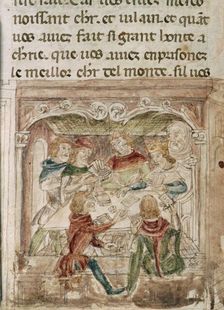 noissant chr. et vilain. et quāt
vos auiez fait si grant honte a
chrie. que uos auiez enpusone
le meillor chr del monte. sil uos